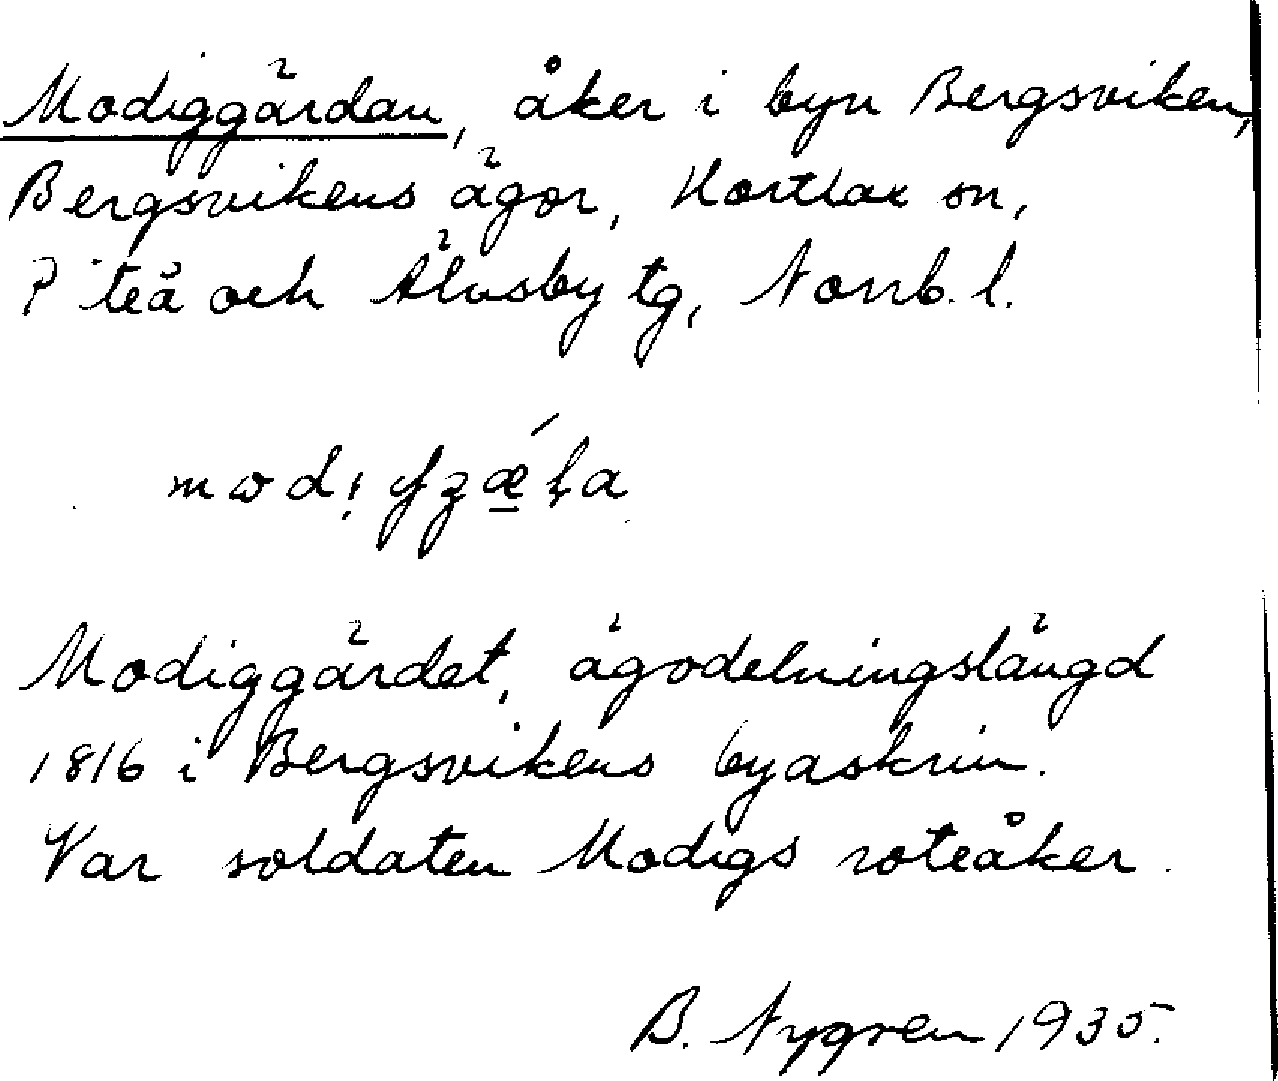 Modiggärdan, åker i byn Bergsviken,
Bergsvikens ägor, Hortlax sn,
Piteå och Älvsby tg, Norrb. l.
Modiggärdet, ägodelningslängd
1816 i Bergsvikens byaskrin.
Var soldaten Modigs roteåker.
B. Nygren 1935.